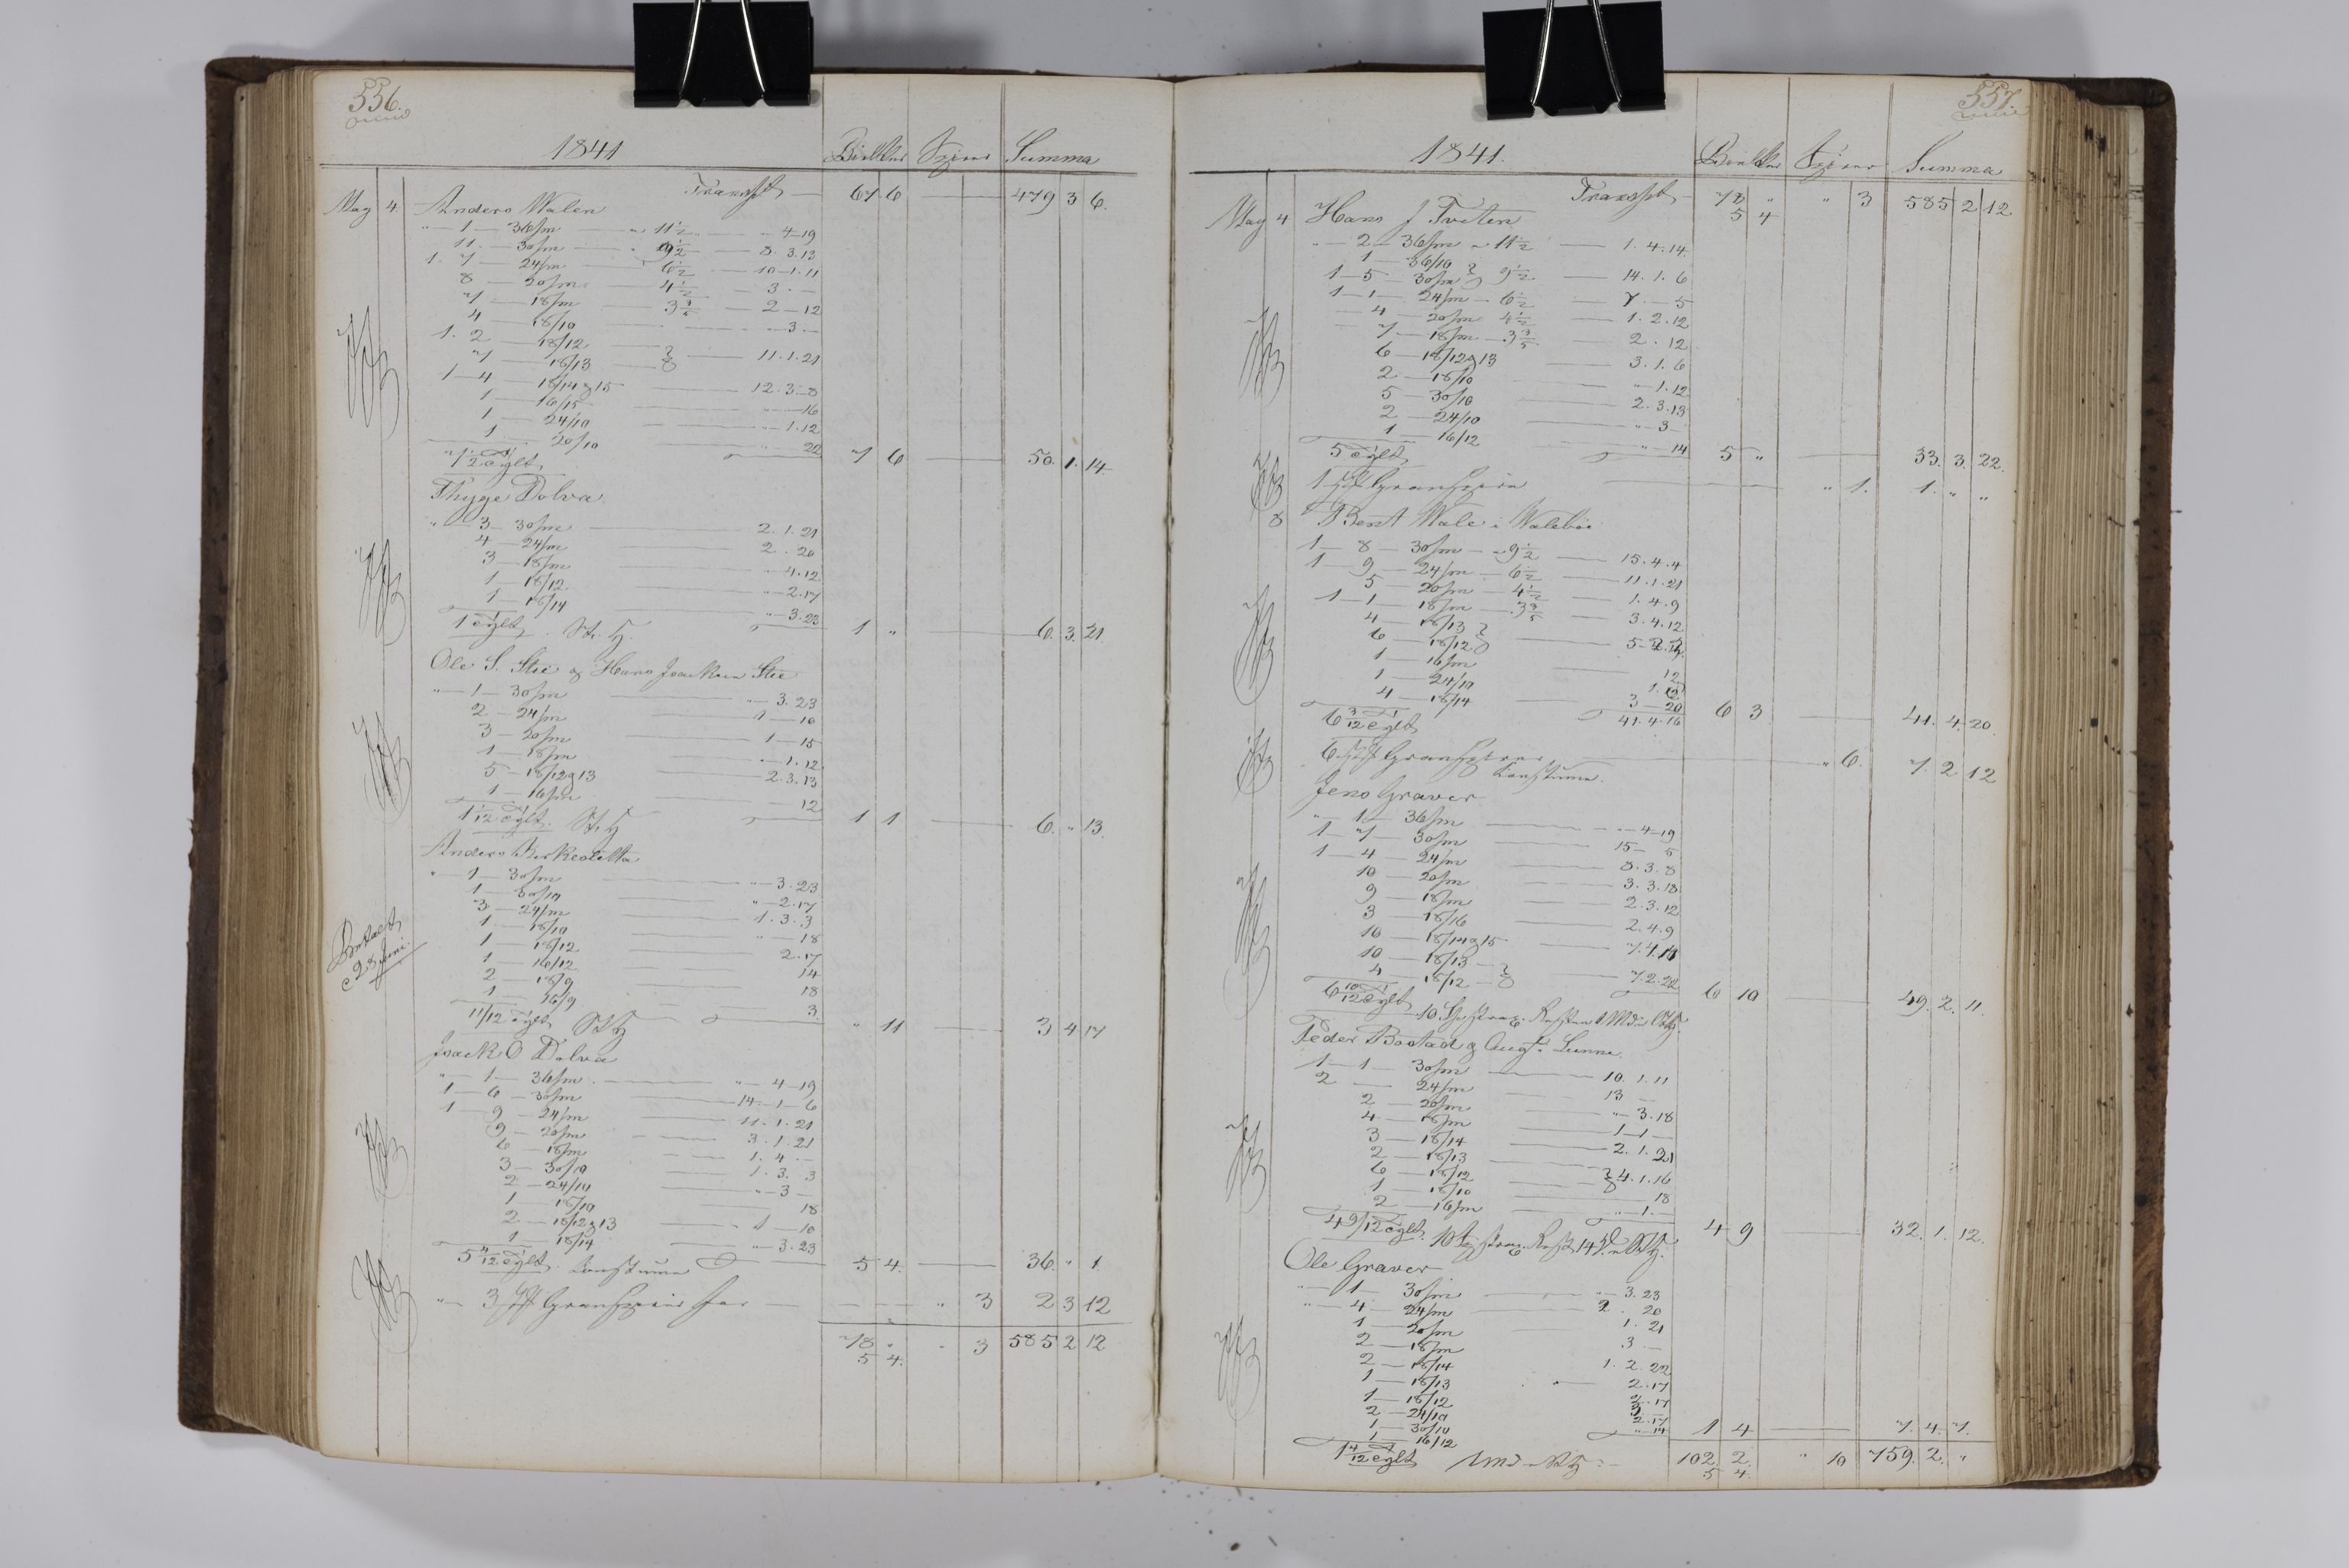 556.
1841 Bielker Spirer Summa
Transpt 67 6 479 3 6.
May 4 Anders Walen
" 1 — 36/m — " 11½ — " 4 — 19
11. — 30/m — " 9½ — 8. 3. 13
1. 7 — 24/m — 6½ — 10 — 1. 11
8 — 20/m — 4½ — 3 . —
7 — 18/m — 3⅗ — 2 — 12
4 — 18/10 — " — 3 —
1. 2 — 18/12
7 — 18/13 — 11. 1. 21
1 — 4 — 18/14 & 15 — 12. 3 — 8
1 — 16/15 — " — 16
1 — 24/10 — " — 1. 12
1 — 20/10 — 22
7 6 50. 1. 14
Thyge Dolva
" 3 — 30/m — 2. 1. 21
4 — 24/m — 2 . 20
3 — 18/m — " 4. 12
1 — 18/12 — " — 2. 17
1 — 18/14 — " — 3. 23
1 Tylt. 1 " 6. 3. 21.
Ole S. Stie & Hans Isacksen Stie
" — 1 — 30/m — " — 3. 23
2 — 24/m — 1 — 10
3 — 20/m — 1 — 15
1 — 18/m — " — 1. 12
5 — 18/12 & 13 — 2. 3. 13
1 — 16/m — 12
1 1/12 Tylt. 1 1 6. " 13.
Anders
" 1 — 30/m — " — 3. 23
1 — 30/10 — " — 2. 17
3 — 24/m — 1. 3. 3
1 — 18/10 — " — 18
1 — 18/12 — 2. 17
1 — 16/12 — 14
2 — 18/9 — 18
1 — 16/9 — 3.
11/12 Tylt " 11 3 4 17
Isack O Dolva
" 1 — 36/m — " 4 — 19
1 — 6 — 30/m — 14 — 1 — 6
1 — 9 — 24/m — 11. 1. 21
9 — 20/m — 3. 1. 21
6 — 18/m — 1. 4 . —
3 — 30/10 — 1. 3. 3
2 — 24/10 — " — 3 —
1 — 18/10 — 18
2 — 18/12 & 13 — 1 — 10
1 — 18/14 — " — 3. 23
5 4/12 Tylt. 5 4. 36. " 1
" — 3 Granspirer " 3 2 3 12
78 " " 3 585 2 12
5 4.
557.
1841. Bielker Spirer Summa
Transpt 78 " " 3 585 2 12
5 4
May 4 Hans J Tveten
" — 2 — 36/m — " 11½ — 1. 4. 14.
1 — 36/10
1 — 5 — 30/m 9½ — 14. 1. 6
1 — 1 — 24/m — 6½ — 7 . — 5
4 — 20/m 4½ — 1. 2. 12
7 — 18/m — 3⅗ — 2 . 12
6 — 18/12 & 13 — 3. 1. 6
2 — 18/10 — " 1. 12
5 — 30/10 — 2. 3. 13
2 — 24/10 — " 3 —
1 — 16/12 — " — 14
5 Tylt 5 " 33. 3. 22.
1 Granspire " 1. 1. " "
8 Bent Wale i Walebøe
1 — 8 — 30/m — " 9½ — 15. 4. 4
1 — 9 — 24/m — 6½ — 11. 1. 21
5 — 20/m — 4½ — 1. 4. 9
1 — 1 — 18/m — 3⅗ — 3. 4. 12
4 — 18/13
6 — 18/12
1 — 16/m — 12
1 — 24/10 — 1. 12
4 — 18/14 — 3 — 20
6 3/12 Tylt 41. 4. 16 6 3 41. 4. 20.
6 Granspirer " 6. 7. 2 12
Jens Graver
" 1 — 36/m — " 4 — 19
1 — 7 — 30/m — 15 — 5
1 — 4 — 24/m — 8. 3. 8
10 — 20/m — 3. 3. 18
9 — 18/m — 2. 3. 12
3 — 18/16 — 2. 4. 9
10 — 18/14 & 15
10 — 18/13
4 — 18/12 — 7. 2. 22
6 10/12 Tylt 6 10 49. 2. 11.
Peder Bostad & Augst.
1 — 1 — 30/m — 10. 1. 11
2 — 24/m — 13 —
2 — 20/m — " 3. 18
4 — 18/m — 1 — 1 —
3 — 18/14 — 2. 1. 21
2 — 18/13
6 — 18/12 — 4. 1. 16
1 — 18/10 — 18
2 — 16/m — " 1. —
4 9/12 Tylt. 4 9 32. 1. 12.
Ole Graver
" 1 — 30/m — " 3. 23
" 4 — 24/m — 2 . 20
1 — 20/m — 1. 21
2 — 18/m — 3 —
2 — 18/14 — 1. 2. 22
1 — 18/13 — 2. 17
1 — 18/12 — 2. 17
2 — 24/10 — 3
1 — 30/10 — 2. 17
1 — 16/12 — " 14 1 4 7. 4. 7.
1 4/12 Tylt 102 2. " 10 759. 2. "
5 4.